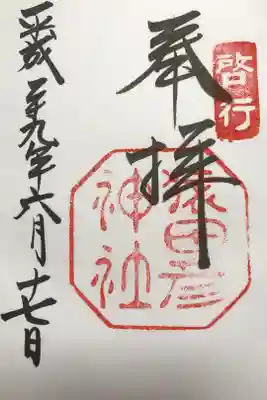 啓行
奉拝
猿田彦
神社
平成二十九年六月十七日